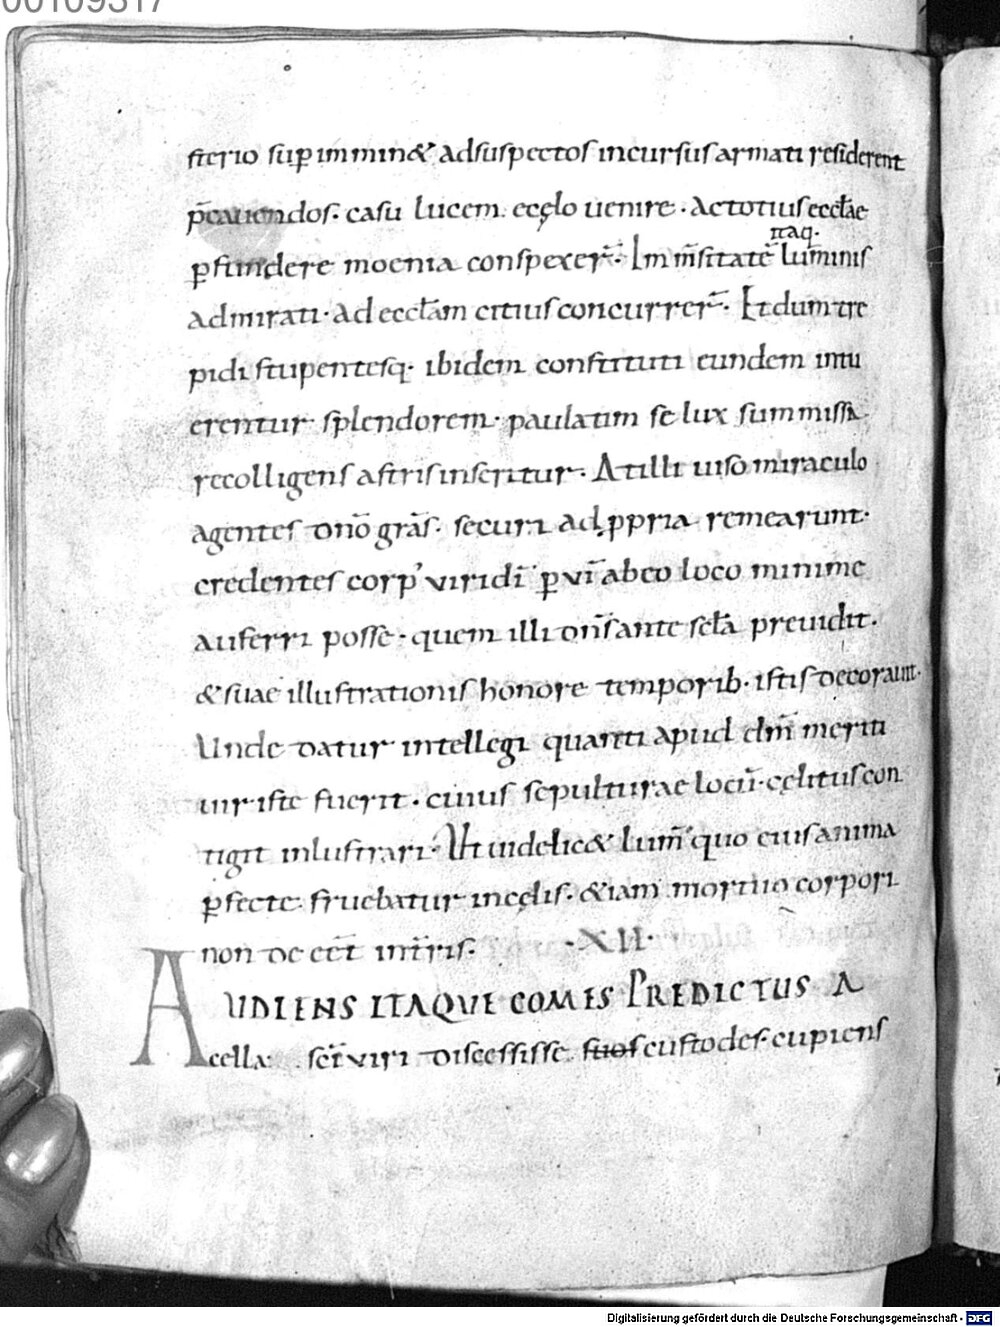 00109317
sterio sup̄ immin& adsuspectos incursus armati residerent
p̄cauendos· casu lucem ecęlo uenire· Ac totius eccłae
itaq·
ꝑfundere moenia conspexer̄· Im̄nsitatē lum̄inis
admirati· ad eccłam citius concurrer̄· Et dum tre
pidi stupentesq· ibidem constituti eundem intu
erentur splendorem· paulatim se lux summissa
recolligens astris inseritur· At illi uiso miraculo
agentes dn̄o grās· securi ad ꝓpria remearunt·
credentes corp' viridī ꝑ vī ab eo loco minime
auferri posse· quem illi dn̄s ante sct̄a preuidit·
& suae illustrationis honore temporib· istis decoraunt·
Unde datur intellegi quanti apud dm̄ meriti
uir iste fuerit· cuius sepulturae locū cęlitus con
tigit inlustrari· Ut uidelic& lum̄ quo eius anima
ꝑfecte fruebatur in cęlis· &iam mortuo corpori
non deeēt in tr̄ris· ·XII·
AUDIENS ITAQUE COMES PREDICTUS A
cella sct̄i viri discessisse suos custodes· cupiens
Digitalisierung gefördert durch die Deutsche Forschungsgemeinschaft - DFG